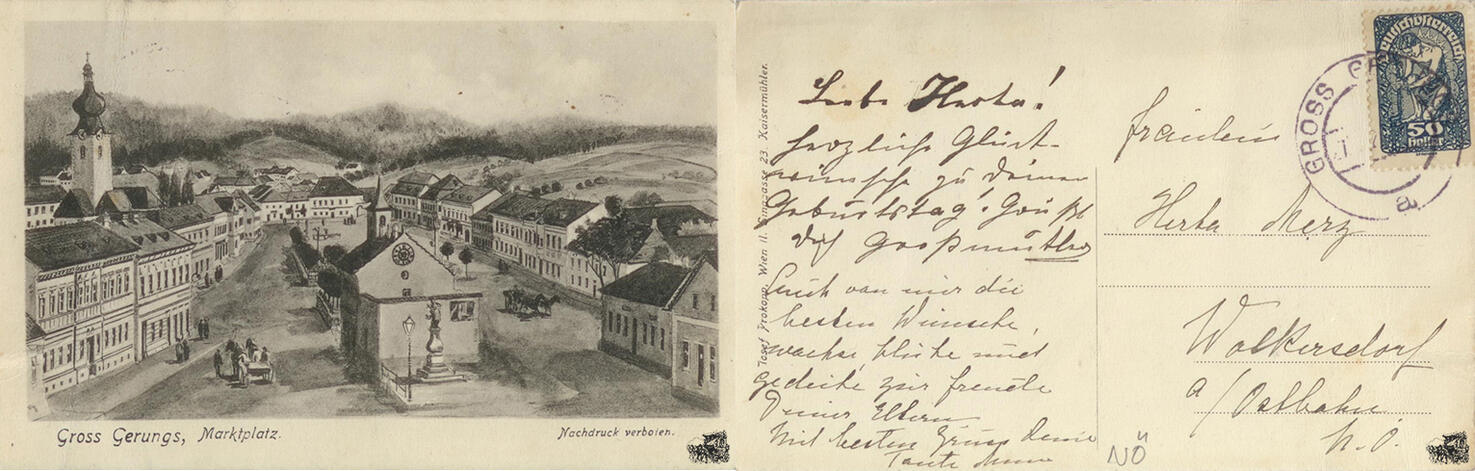 Gross Gerungs, Marktplatz.
Nachdruck verboten.
Josef Prokopp, Wien II. 23. Kaisermühler.
Liebe Herta!
Herzliche Glück-
wünsche zu deinem
Geburtstag! Grüßt
dich Großmutter
Auch von mir die
besten Wünsche,
wachse, blühe und
gedeihe zur Freude
Deiner Eltern
Mit besten Grüss Deine
Tante
Deutschösterreich
50
Heller
GROSS GERUNGS
a
Fräulein
Herta Merz
Wolkersdorf
a/Ostbahn
N.Ö.
NÖ